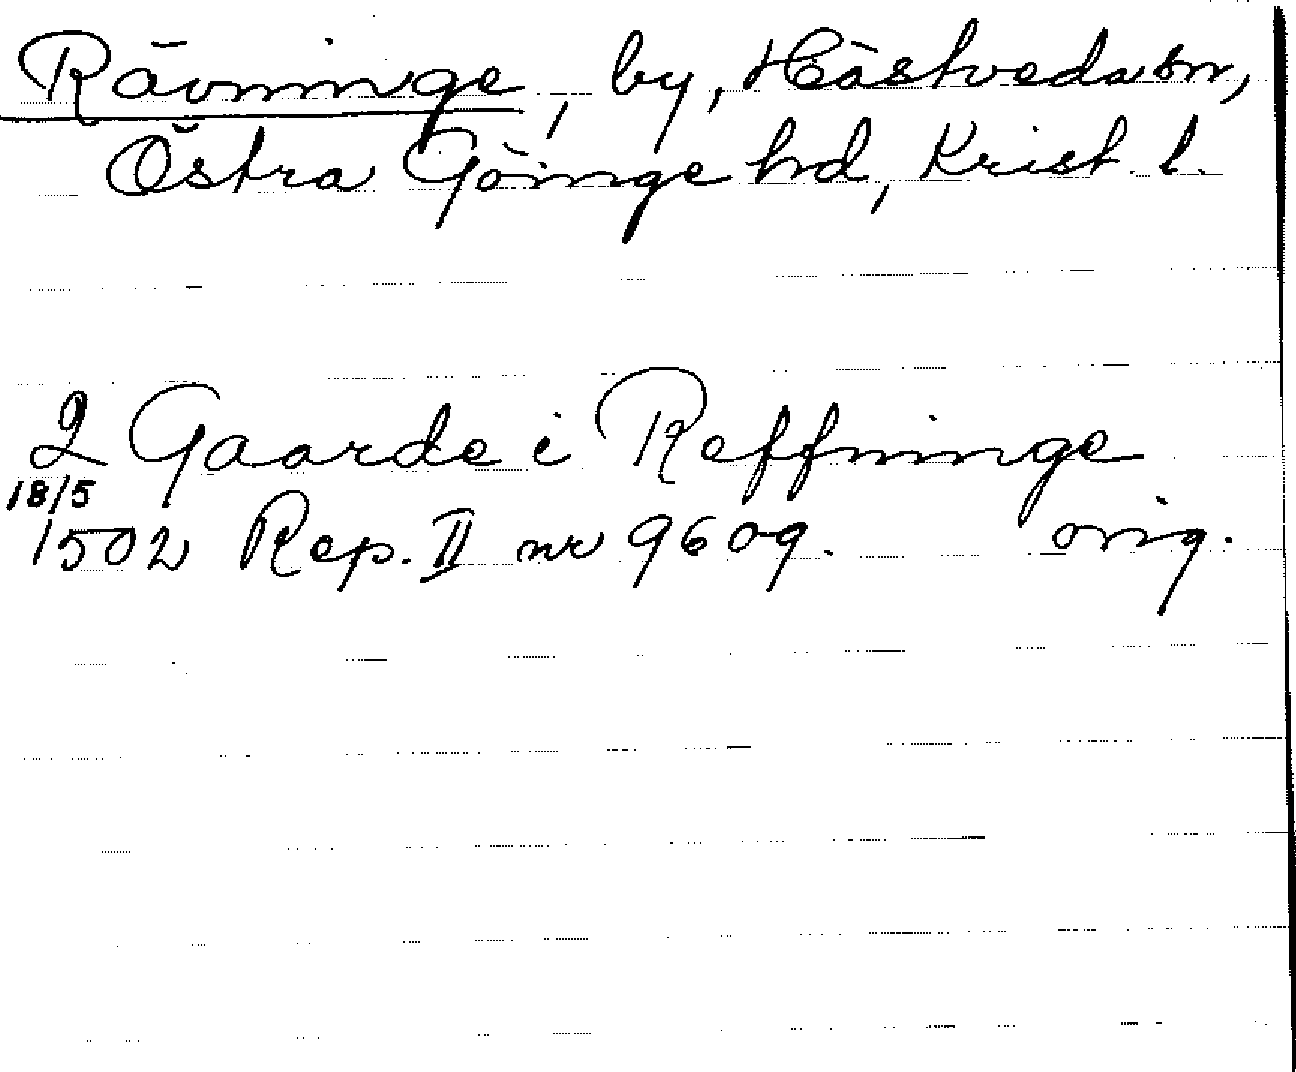 Rävninge, by, Hästveda sn,
Östra Göinge hd, Krist. l.
2 Gaarde i Reffninge
18/5
1502 Rep. II nr 9609. orig.